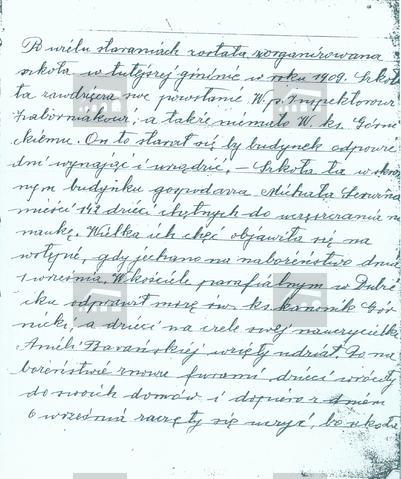 Po wielu staraniach została zorganizowana
szkoła w tutejszej gminie w roku 1909. Szkoła
ta zawdzięcza swe powstanie W. p. Inspektorowi
a także niemało W. ks. Górnic
kiemu. On to starał się by budynek odpowie
dni wynająć i urządzić. – Szkoła ta w skro
nym budynku gospodarza Michała
mieści 142 dzieci chętnych do uczęszczania na
naukę. Wielka ich chęć objawiła się na
wstępie, gdy jechano na nabożeństwo dnia
1 września. W kościele parafialnym w
odprawił mszę św. ks. kanonik Gór
nicki, a dzieci na czele swej nauczycielki
Amelii Barańskiej wzięły udział. Po na
bożeństwie znowu furami dzieci wróciły
do swoich domów i dopiero z dniem
6 września zaczęły się uczyć, bo szkoła